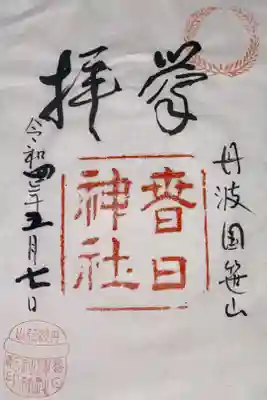 丹波国笹山
奉拝
春日
神社
令和四年五月七日